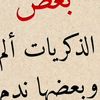 بعض
الذكريات ألم
وبعضها ندم